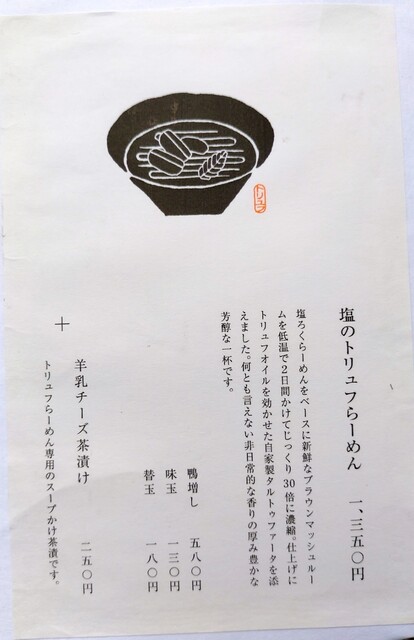 トリュフ
塩のトリュフらーめん 一、三五〇円
塩ろくらーめんをベースに新鮮なブラウンマッシュルー
ムを低温で2日間かけてじっくり30倍に濃縮。仕上げに
トリュフオイルを効かせた自家製タルトゥファータを添
えました。何とも言えない非日常的な香りの厚み豊かな
芳醇な一杯です。
鴨増し 五八〇円
味玉 一三〇円
替玉 一八〇円
＋
羊乳チーズ茶漬け 二五〇円
トリュフらーめん専用のスープかけ茶漬です。